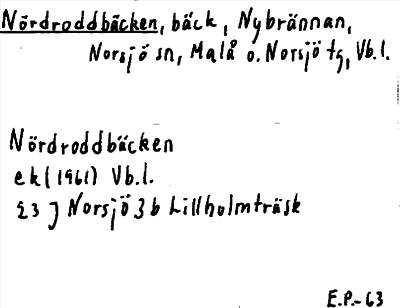 Nördroddbäcken, bäck, Nybrännan,
Norsjö sn, Malå o. Norsjö tg, Vb.l.
Nördroddbäcken
ek (1961) Vb.l.
23 J Norsjö 3 b Lillholmträsk
E.P.-63